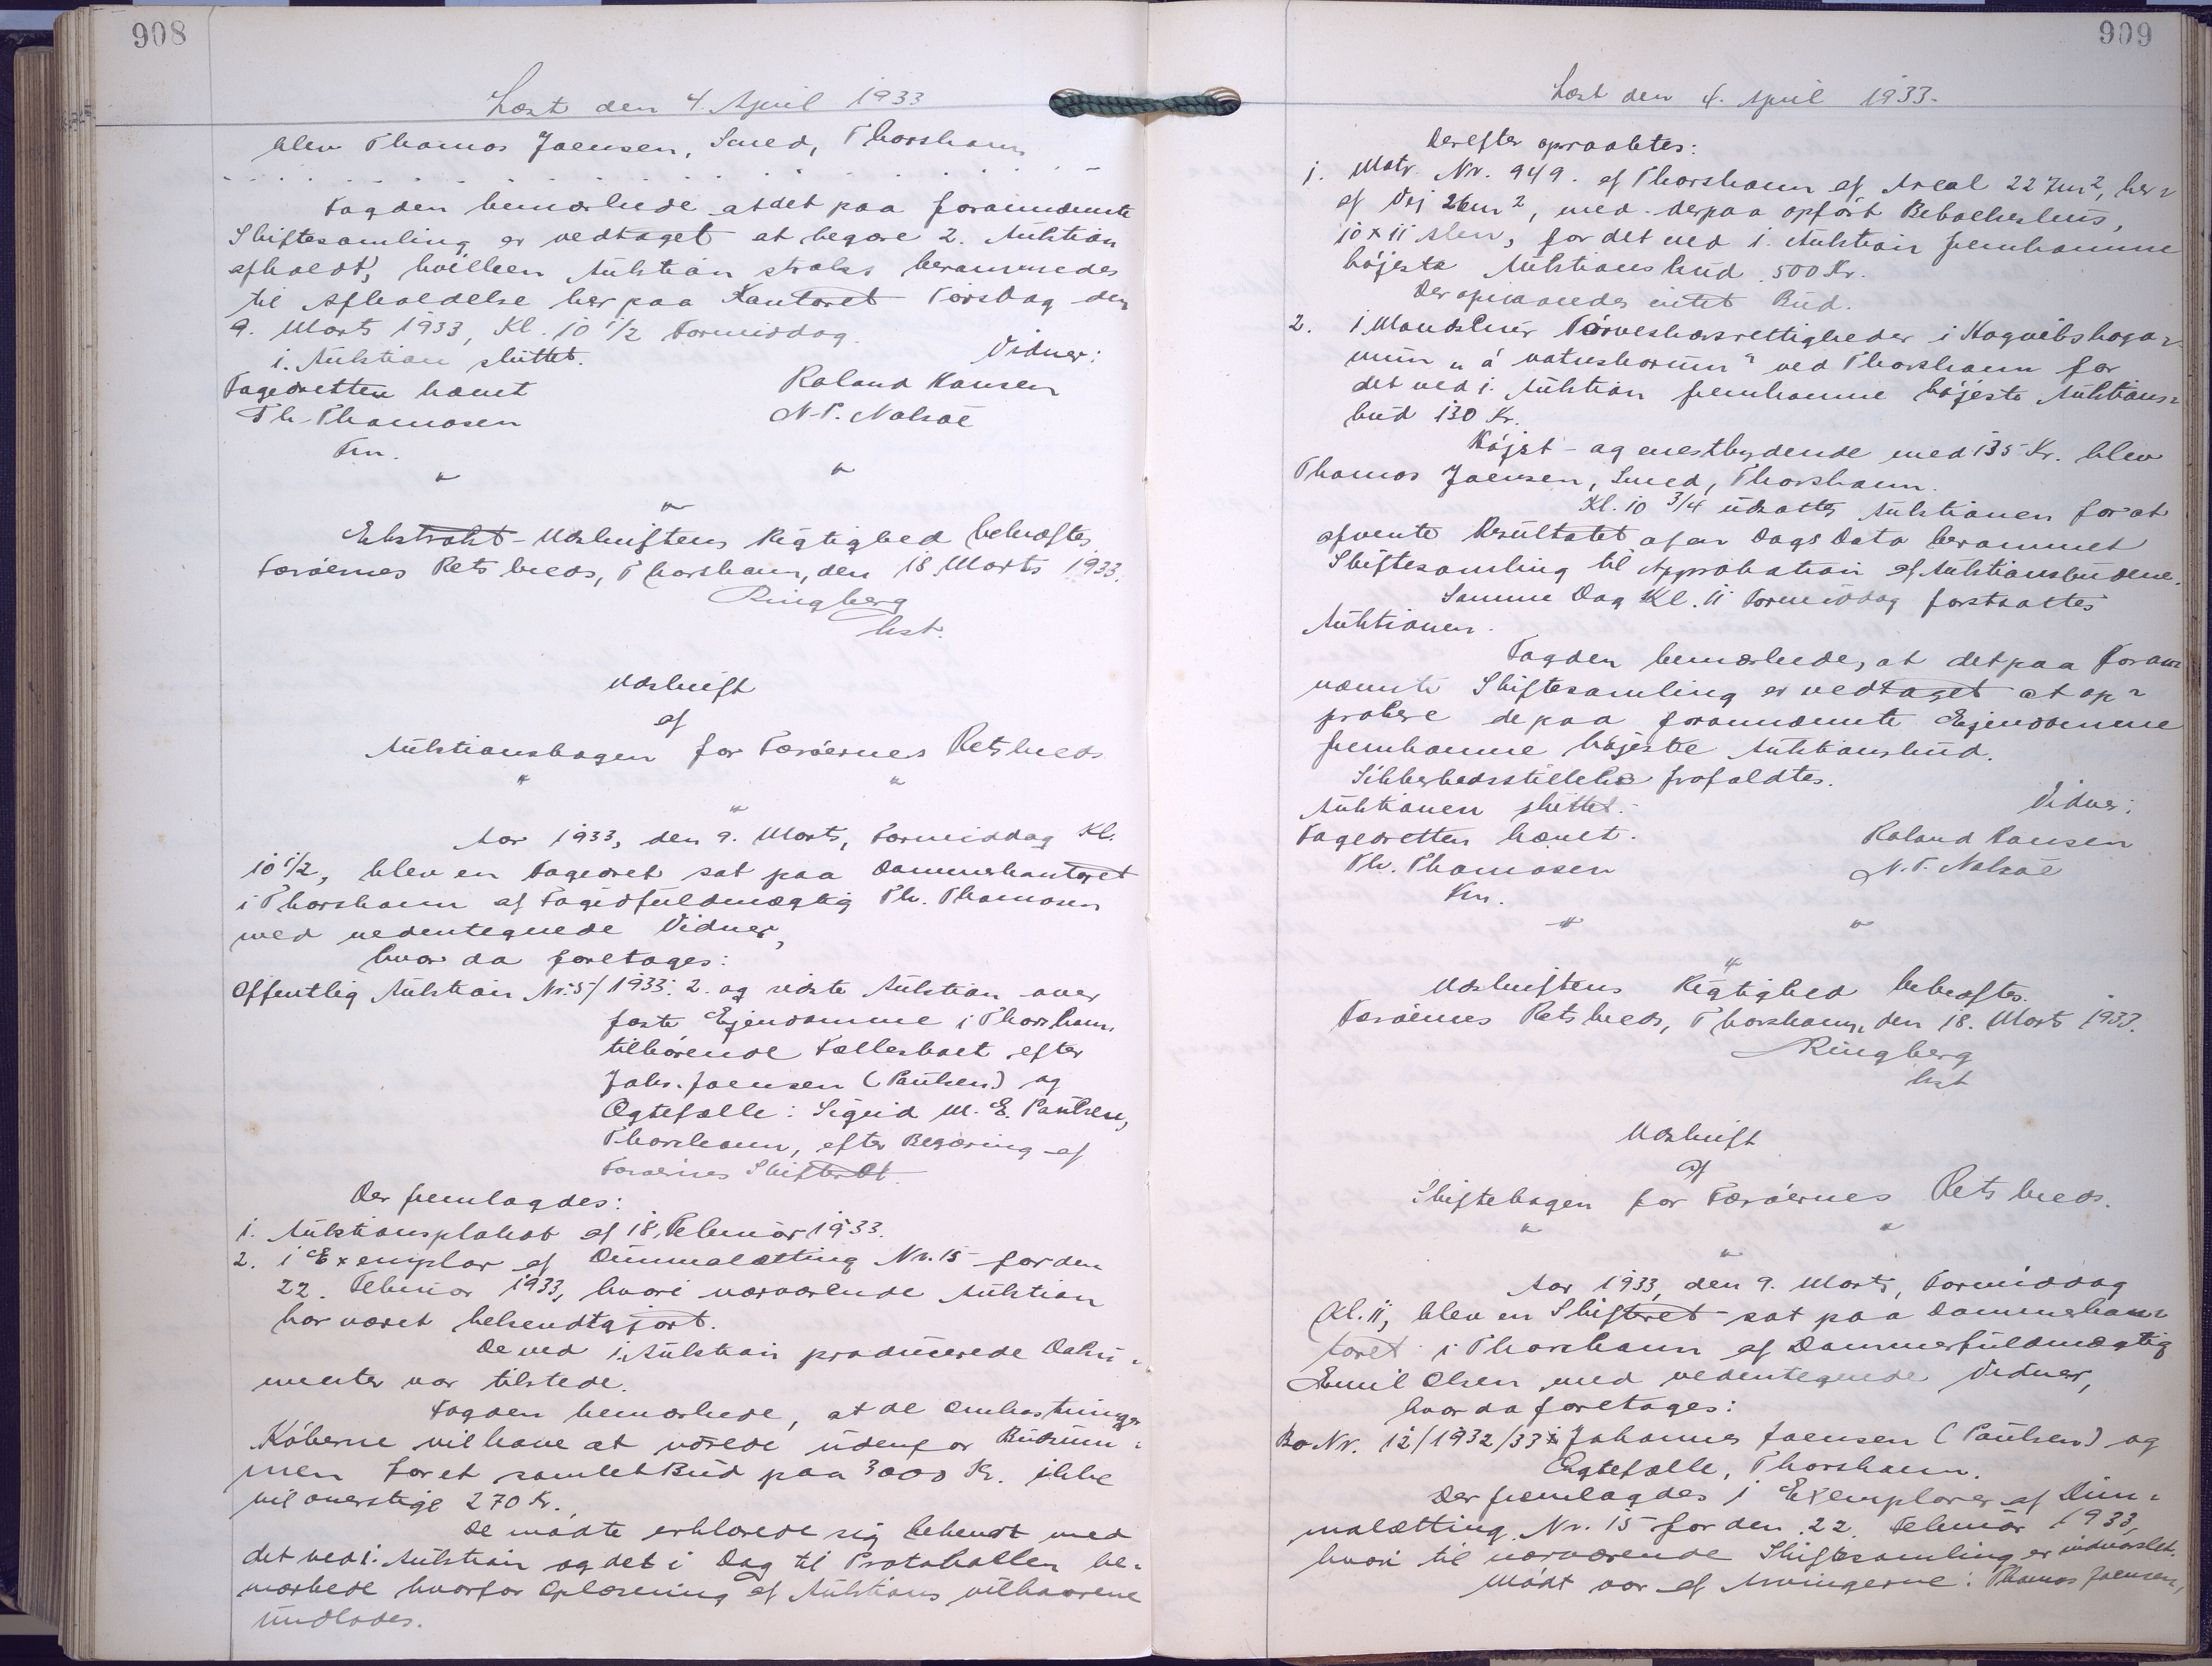 908
Læst den 4. April 1933
blev Thomas Joensen, Smed, Thorshavn
Fogden bemærkede at det paa forannævnte
Skiftesamling er vedtaget at begære 2. Auktion
afholdt, hvilken Auktion straks berammedes
til Afholdelse her paa Kontoret Torsdag den
9. Marts 1933, Kl. 10 1/2 Formiddag.
1. Auktion sluttet.
Vidner:
Fogedretten hævet
Roland Hansen
Th. Thomasen
N. P. Nolsøe
Fm.
" "
"
Ekstrakt-Udskriftens Rigtighed bekræftes
Færøernes Retskreds, Thorshavn, den 18. Marts 1933.
Ringberg
kst.
Udskrift
af
Auktionsbogen for Færøernes Retskreds
" "
"
Aar 1933, den 9. Marts, Formiddag Kl.
10 1/2, blev en Fogedret sat paa Dommerkontoret
i Thorshavn af Fogedfuldmægtig Th. Thomasen
med undertegnede Vidner,
hvor da foretages:
Offentlig Auktion Nr. 5/1933: 2. og sidste Auktion over
faste Ejendomme i Thorshavn,
tilhørende Fællesboet efter
Johs. Joensen (Paulsen) og
Ægtefælle: Sigrid M. E. Paulsen,
Thorshavn, efter Begæring af
Færøernes Skifteret.
Der fremlagdes:
1. Auktionsplakat af 18. Februar 1933.
2. 1 Exemplar af Dimmalætting Nr. 15 for den
22. Februar 1933, hvori nærværende Auktion
har været bekendtgjort.
De ved 1. Auktion producerede Doku-
menter var tilstede.
Fogden bemærkede, at de Omkostninger
Køberne vil have at udrede udenfor Budsum-
men for et samlet Bud paa 3000 Kr. ikke
vil overstige 270 Kr.
De mødte erklærede sig bekendt med
det ved 1. Auktion og det i Dag til Protokollen be-
mærkede hvorfor Oplæsning af Auktionsvilkaarene
undlodes.
909
Læst den 4. April 1933.
Derefter opraabtes:
1. Matr. Nr. 949. af Thorshavn af Areal 227m², her-
af Vej 26m², med derpaa opført Beboelseshus,
10 x 11 Alen, for det ved 1. Auktion fremkomne
højeste Auktionsbud 500 Kr.
Der opnaaedes intet Bud.
2. 1 Mandslur Tørveskærsrettigheder i Hoyvikshaga-
num "á vatnskorum" ved Thorshavn for
det ved 1. Auktion fremkomne højeste Auktions-
bud 130 Kr.
Højst- og enestbydende med 135 Kr. blev
Thomas Joensen, Smed, Thorshavn.
Kl. 10 3/4 udsattes Auktionen for at
afvente Resultatet af en Dags Dato berammet
Skiftesamling til Approbation af Auktionsbudene.
Samme Dag Kl. 11 Formiddag fortsattes
Auktionen.
Fogden bemærkede, at det paa foran
nævnte Skiftesamling er vedtaget at ap-
probere de paa forannævnte Ejendomme
fremkomne højeste Auktionsbud.
Sikkerhedsstillelse frafaldtes.
Auktionen sluttet.
Vidner:
Fogedretten hævet.
Roland Hansen
Th. Thomasen
N. P. Nolsøe
Fm.
" "
"
Udskriftens Rigtighed bekræftes.
Færøernes Retskreds, Thorshavn, den 18. Marts 1933.
Ringberg
kst
Udskrift
af
Skiftebogen for Færøernes Retskreds.
" "
"
Aar 1933, den 9. Marts, Formiddag
Kl. 11, blev en Skifteret sat paa Dommerkon-
toret i Thorshavn af Dommerfuldmægtig
Emil Olsen med undertegnede Vidner,
hvor da foretages:
Bo Nr. 12/1932/33 Johannes Joensen (Paulsen) og
Ægtefælle, Thorshavn.
Der fremlagdes 1 Exemplar af Dim-
malætting Nr. 15 for den 22. Februar 1933,
hvori til nærværende Skiftesamling er indvarslet.
Mødt var af Arvingerne: Thomas Joensen,